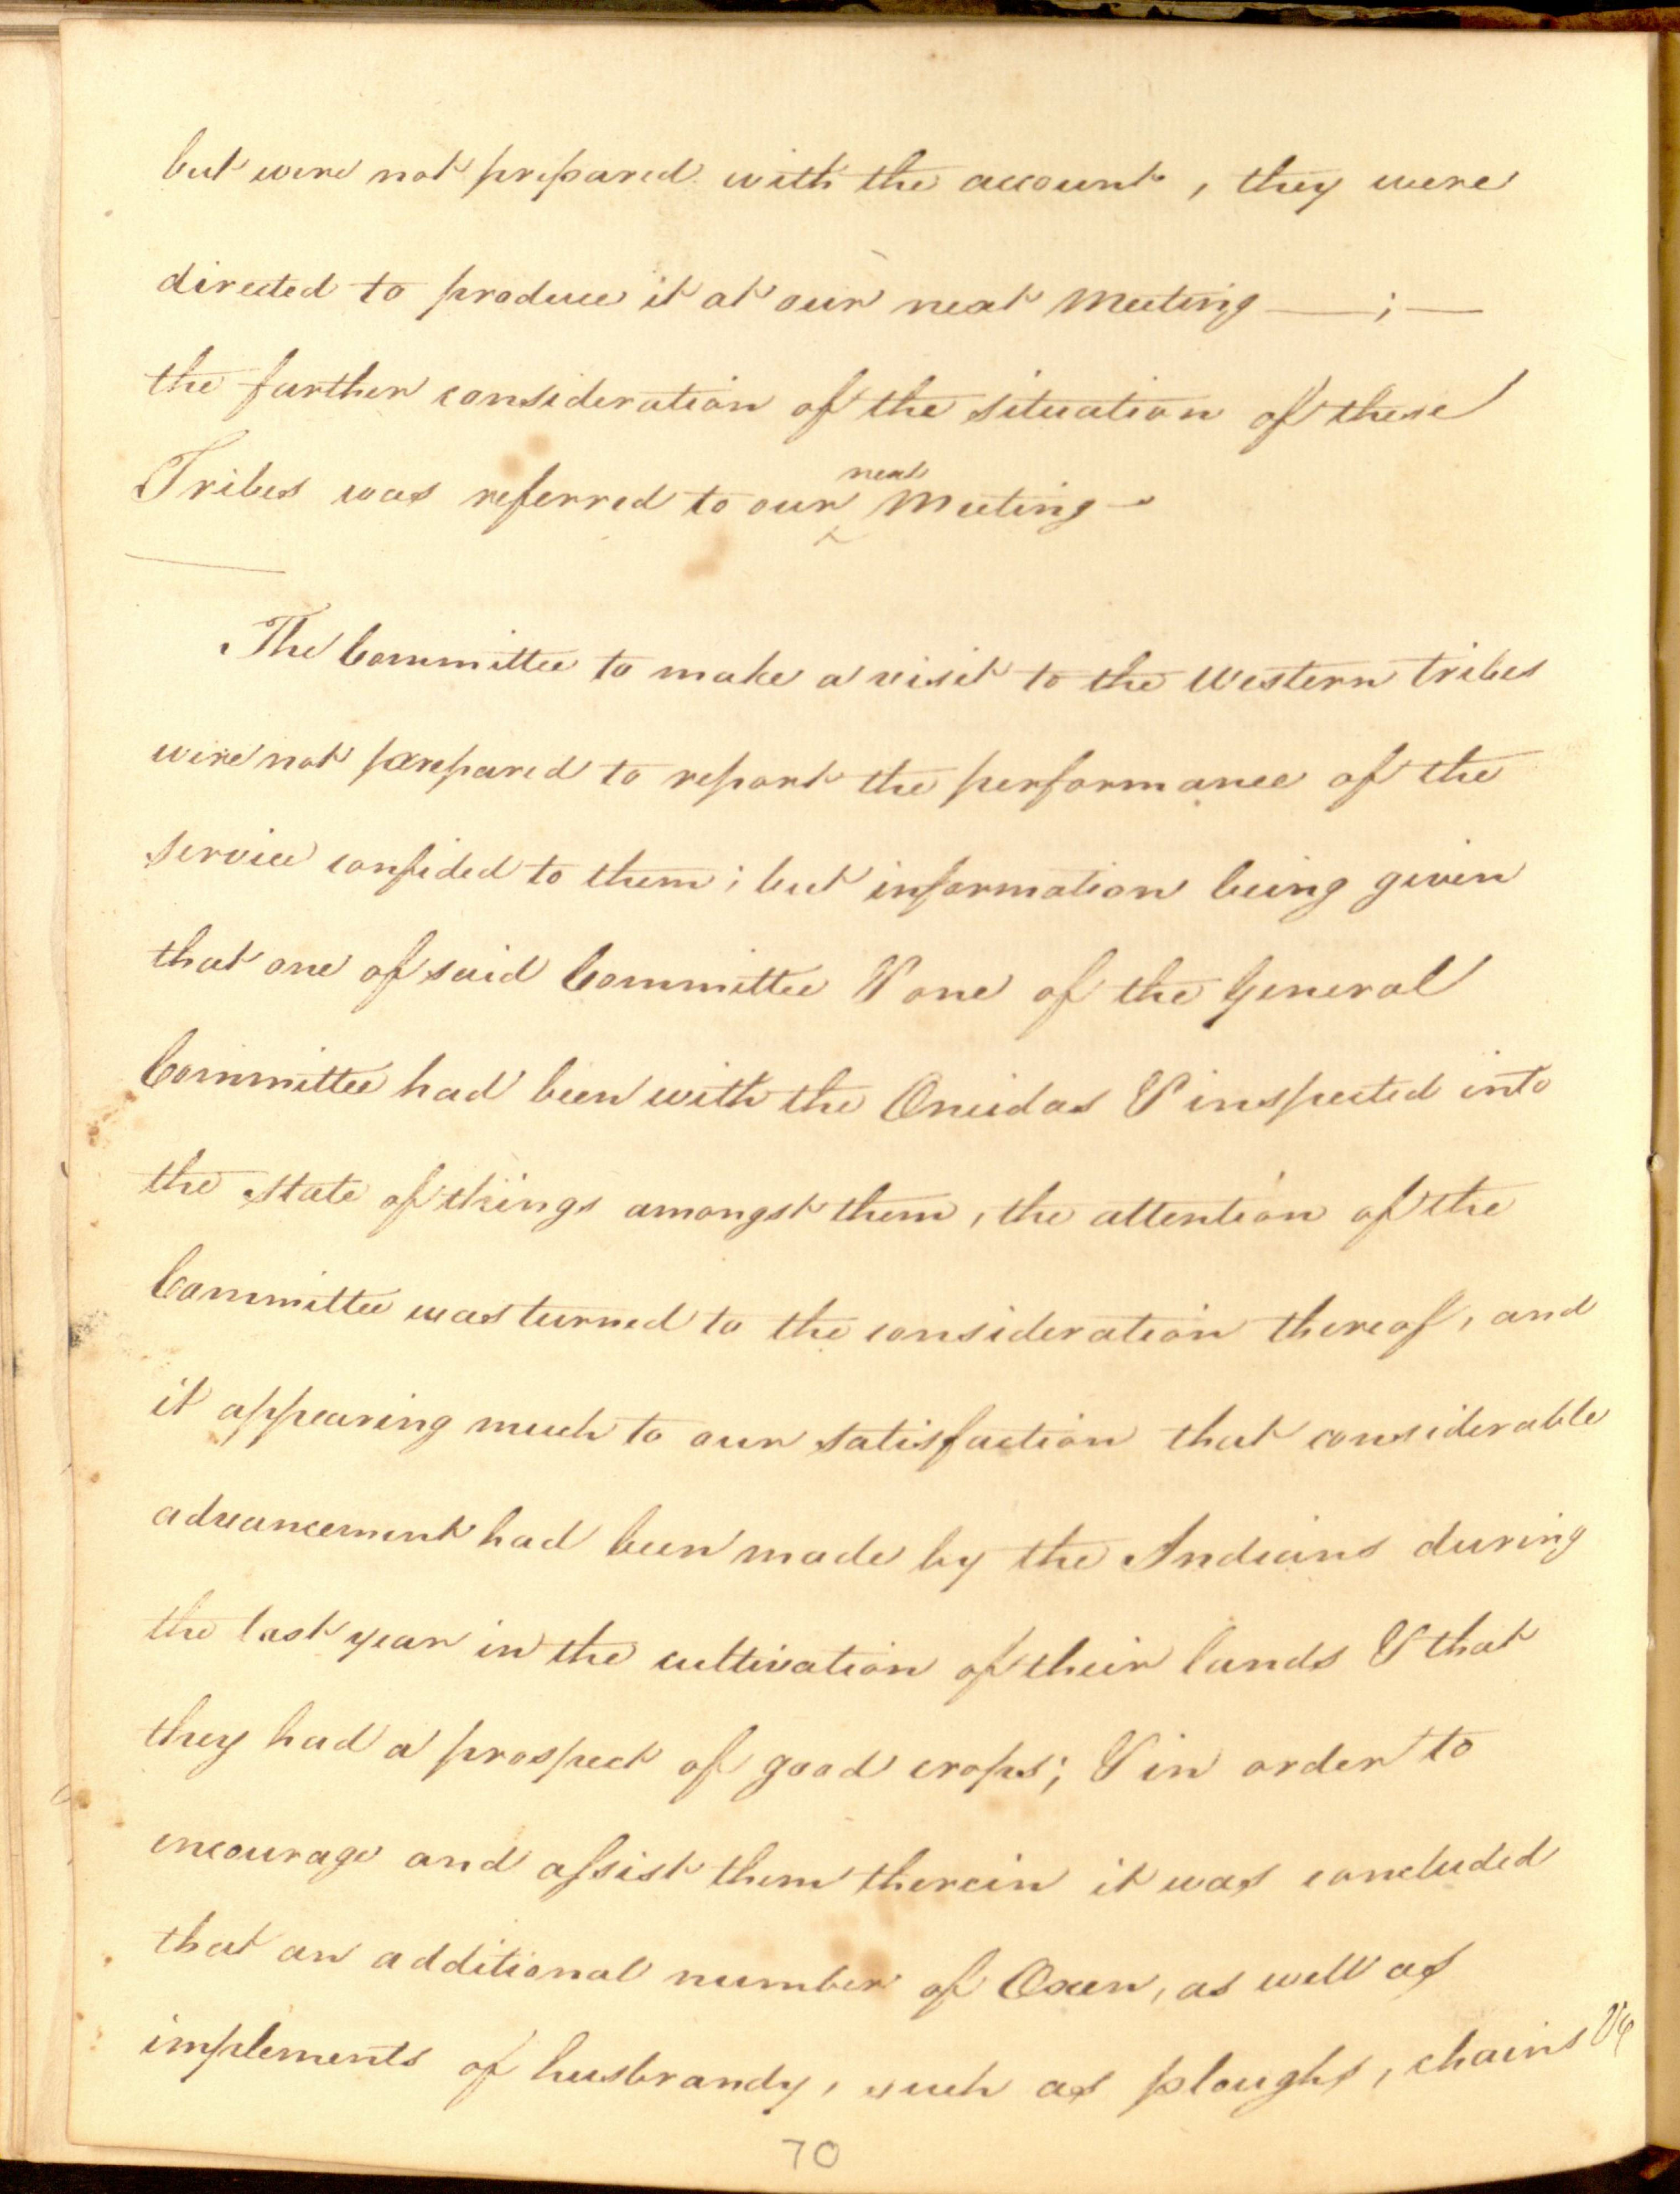 but were not prepared with the account, they were
directed to produce it at our next Meeting — ; —
the further consideration of the situation of these
Tribes was referred to our next Meeting —
The Committee to make a visit to the Western tribes
were not prepared to report the performance of the
service confided to them; but information being given
that one of said Committee & one of the General
Committee had been with the Oneidas & inspected into
the state of things amongst them, the attention of the
Committee was turned to the consideration thereof, and
it appearing much to our satisfaction that considerable
advancement had been made by the Indians during
the last year in the cultivation of their lands & that
they had a prospect of good crops; & in order to
encourage and assist them therein it was concluded
that an additional number of Oxen, as well as
implements of husbrandy, such as ploughs, chains &c
70